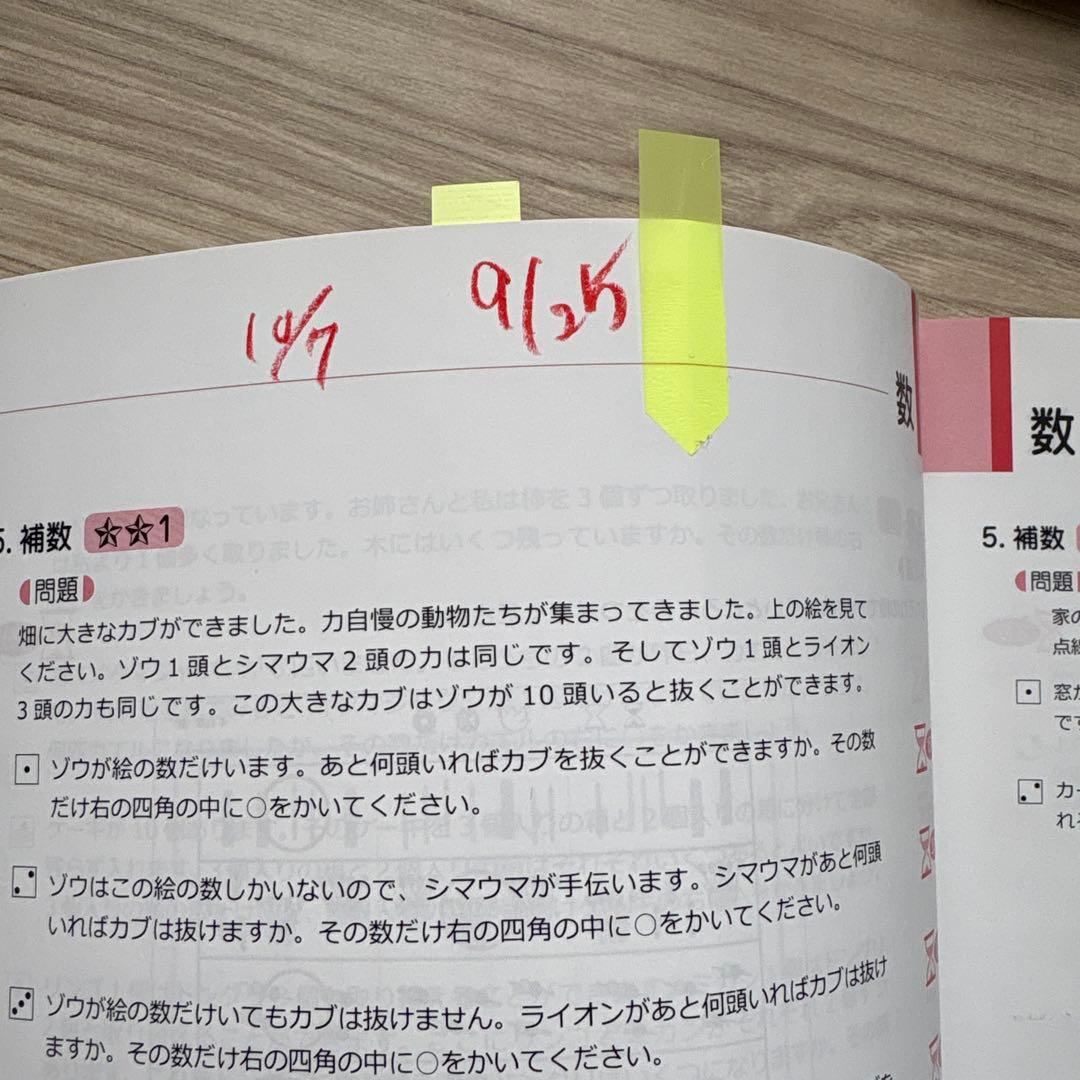 10/7
9/25
数
5. 補数 ☆☆1
問題
畑に大きなカブができました。力自慢の動物たちが集まってきました。上の絵を見て
ください。ゾウ1頭とシマウマ2頭の力は同じです。そしてゾウ1頭とライオン
3頭の力も同じです。この大きなカブはゾウが10頭いると抜くことができます。
ゾウが絵の数だけいます。あと何頭いればカブを抜くことができますか。その数
だけ右の四角の中に○をかいてください。
ゾウはこの絵の数しかいないので、シマウマが手伝います。シマウマがあと何頭
いればカブは抜けますか。その数だけ右の四角の中に○をかいてください。
ゾウが絵の数だけいてもカブは抜けません。ライオンがあと何頭いればカブは抜け
ますか。その数だけ右の四角の中に○をかいてください。
数
5. 補数
問題
家の
点線
窓が
です
カー
れ